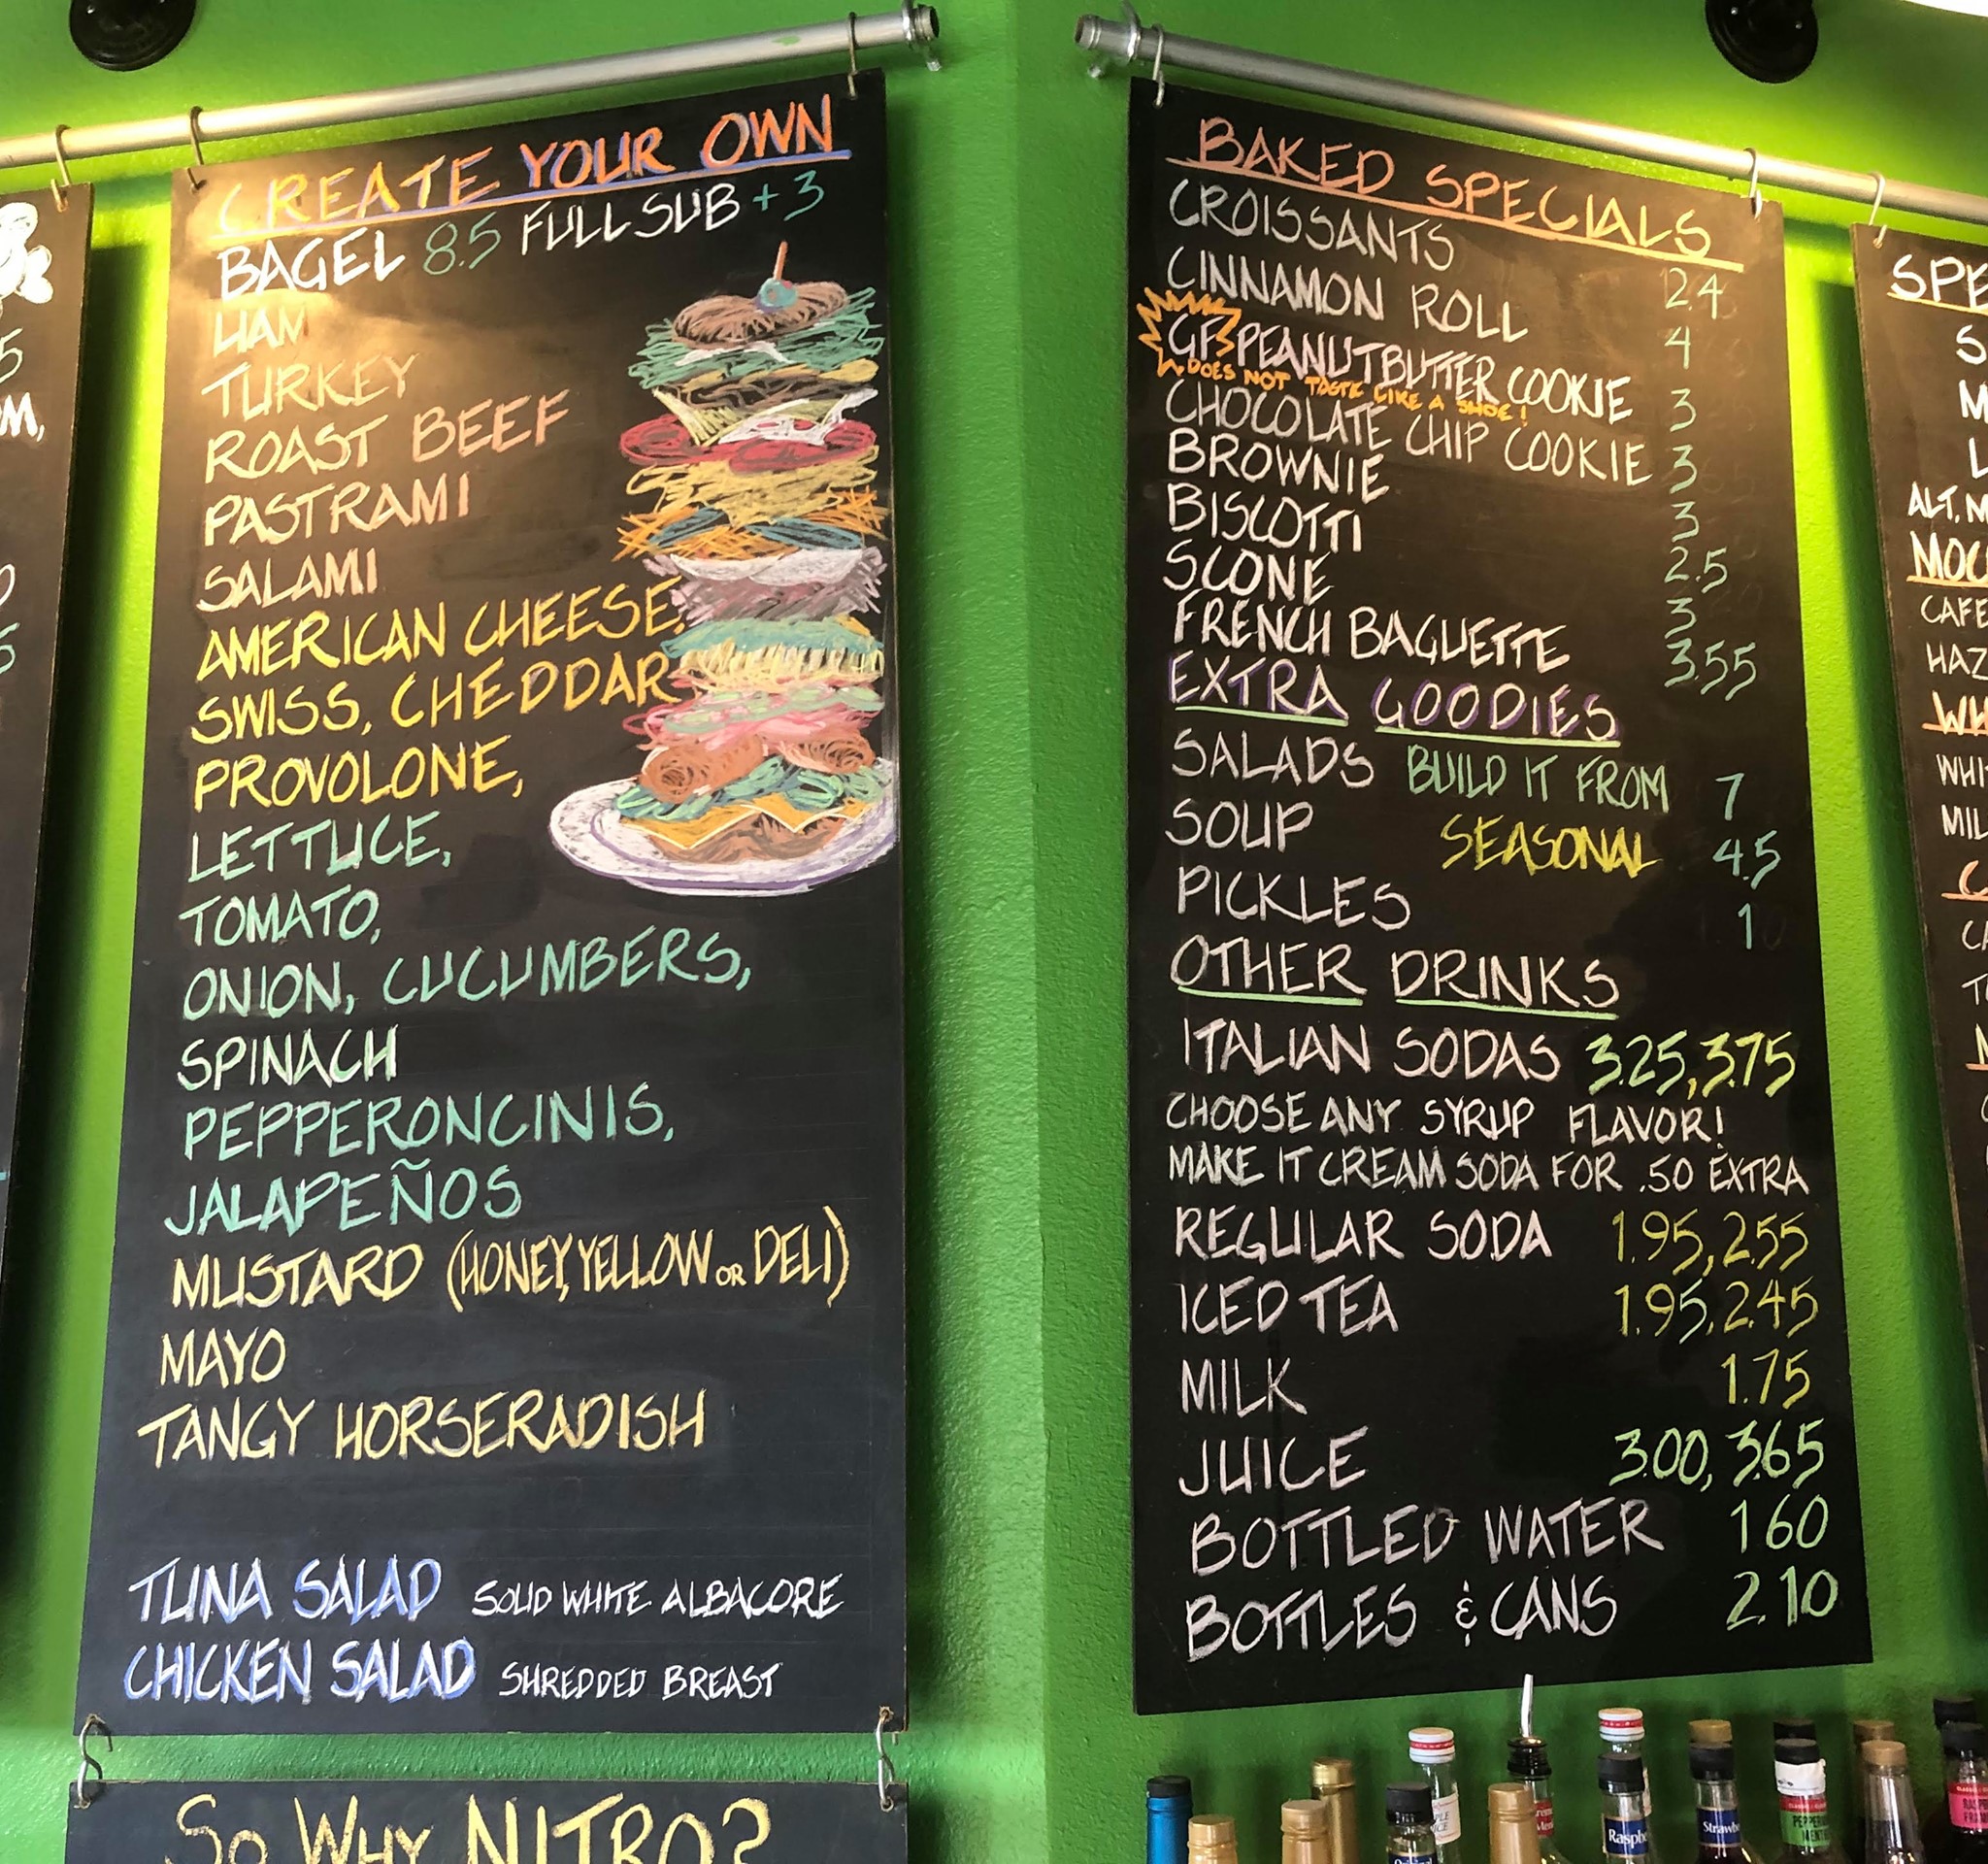 CREATE YOUR OWN
BAGEL 8.5 FULL SUB + 3
HAM
TURKEY
ROAST BEEF
PASTRAMI
SALAMI
AMERICAN CHEESE,
SWISS, CHEDDAR
PROVOLONE,
LETTUCE,
TOMATO,
ONION, CUCUMBERS,
SPINACH
PEPPERONCINIS,
JALAPEÑOS
MUSTARD (HONEY, YELLOW OR DELI)
MAYO
TANGY HORSERADISH
TUNA SALAD SOLID WHITE ALBACORE
CHICKEN SALAD SHREDDED BREAST
SO WHY NITRO?
BAKED SPECIALS
CROISSANTS 2.4
CINNAMON ROLL 4
GF PEANUTBUTTER COOKIE 3
DOES NOT TASTE LIKE A SHOE!
CHOCOLATE CHIP COOKIE 3
BROWNIE 3
BISCOTTI 2.5
SCONE 3
FRENCH BAGUETTE 3.55
EXTRA GOODIES
SALADS BUILD IT FROM 7
SOUP SEASONAL 4.5
PICKLES 1
OTHER DRINKS
ITALIAN SODAS 3.25, 3.75
CHOOSE ANY SYRUP FLAVOR!
MAKE IT CREAM SODA FOR .50 EXTRA
REGULAR SODA 1.95, 2.55
ICED TEA 1.95, 2.45
MILK 1.75
JUICE 3.00, 3.65
BOTTLED WATER 1.60
BOTTLES & CANS 2.10